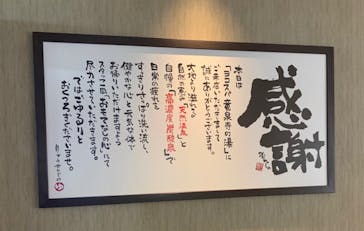 感謝
本日は
「ヨコスパ竜泉寺の湯」に
ご来店いただきまして
誠にありがとうございます。
大地より湧いづ
自然の恵み「天然温泉」と
自慢の「高濃度炭酸泉」で
日常の疲れを
すっきりさっぱり洗い流し、
健やかな心と元気な体で
お帰りいただけますよう
スタッフ一同「おもてなしの心」にて
尽力させていただきます。
ではごゆるりと
おくつろぎくださいませ。